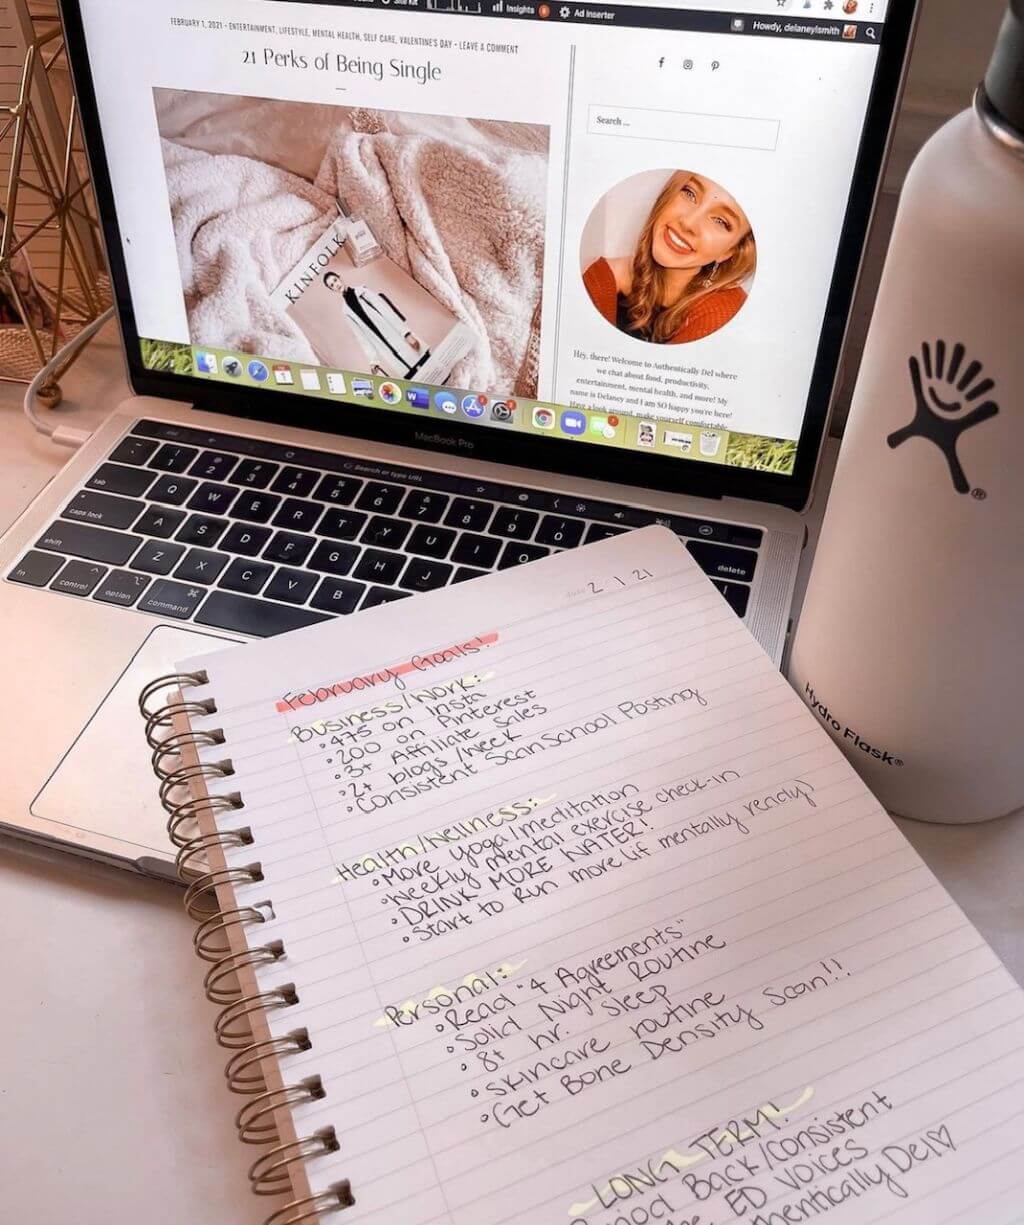 Insights
Ad Inserter
Howdy, delaneylsmith
FEBRUARY 1, 2021 - ENTERTAINMENT, LIFESTYLE, MENTAL HEALTH, SELF CARE, VALENTINE'S DAY - LEAVE A COMMENT
21 Perks of Being Single
KINFOLK
Search ...
Hey, there! Welcome to Authentically Del where
we chat about food, productivity,
entertainment, mental health, and more! My
name is Delaney and I am SO happy you're here!
Have a look around, make yourself comfortable
MacBook Pro
Search or type URL
tab
caps lock
shift
fn
control
option
command
delete
Hydro Flask®
2 1 21
February Goals!
Business/Work:
• 475 on Insta
• 200 on Pinterest
• 3+ Affiliate Sales
• 2+ blogs/week
• Consistent ScanSchool Posting
Health/Wellness:
• More yoga/meditation
• Weekly mental exercise check-in
• DRINK MORE WATER!
• Start to Run more (if mentally ready)
Personal:
• Read "4 Agreements"
• Solid Night Routine
• 8+ hr. sleep
• skincare routine
• Get Bone Density Scan!!
LONG TERM!
Back/Consistent
ED VOICES
Del♡